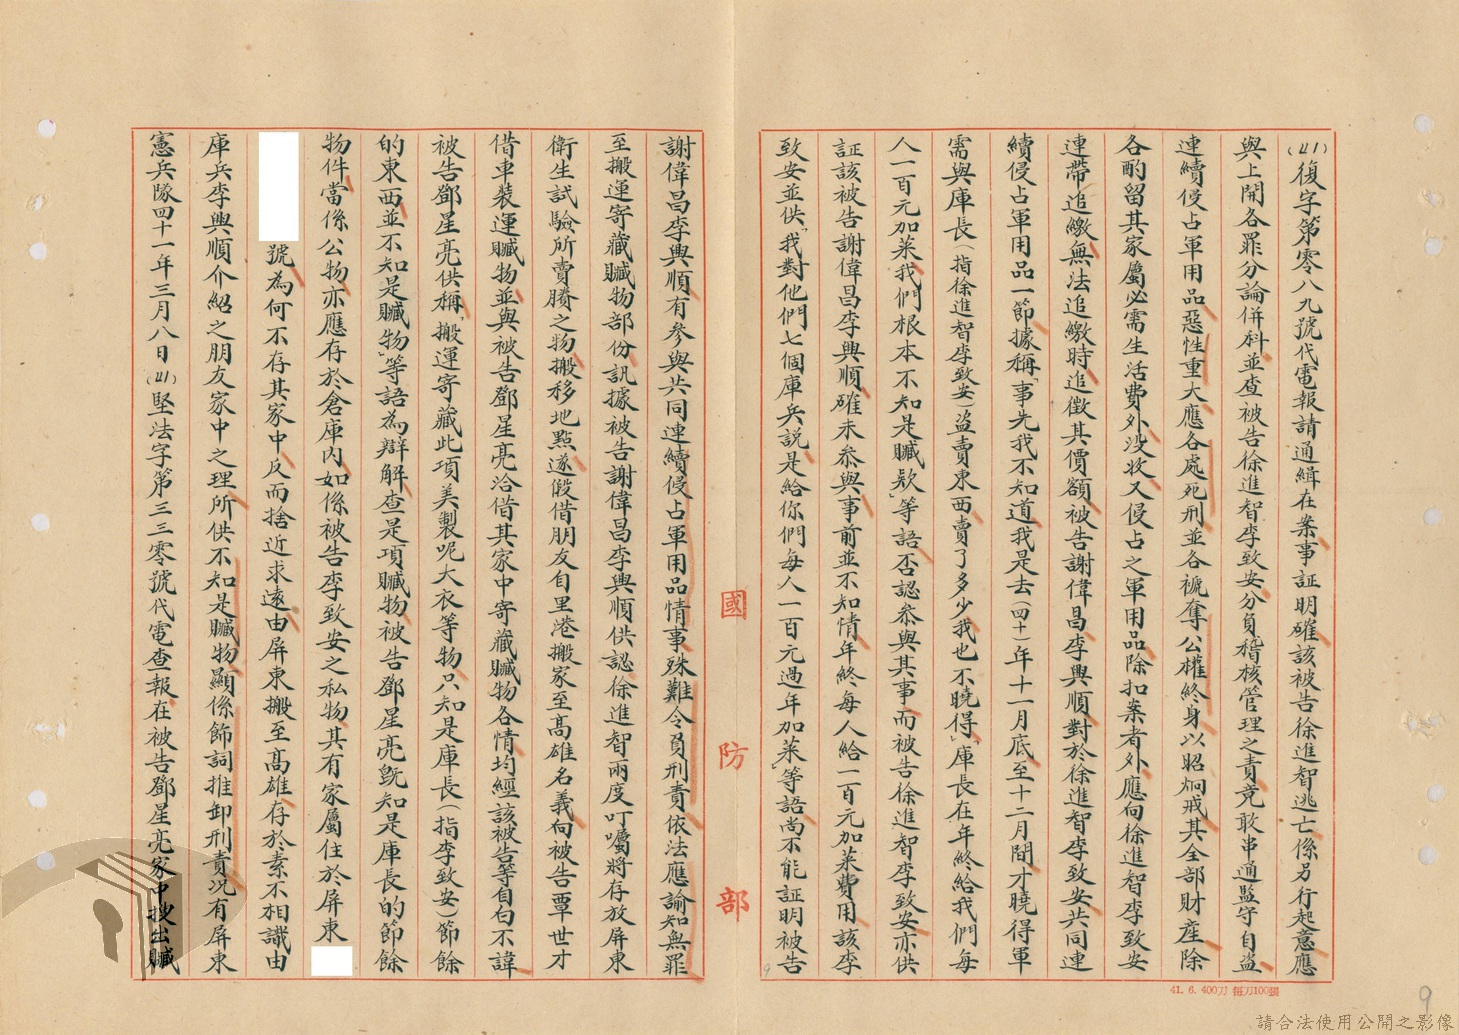 (41)復字第零八九號代電報請通緝在案事証明確該被告徐進智逃亡係另行起意應
與上開各罪分論併科並查被告徐進智李致安分負稽核管理之責竟敢串通監守自盜
連續侵占軍用品惡性重大應各處死刑並各褫奪公權終身以昭炯戒其全部財產除
各酌留其家屬必需生活費外没收又侵占之軍用品除扣案者外應向徐進智李致安
連帶追繳無法追繳時追徵其價額被告謝偉昌李興順對於徐進智李致安共同連
續侵占軍用品一節據稱「事先我不知道我是去(四十)年十一月底至十二月間才曉得軍
需與庫長(指徐進智李致安)盜賣東西賣了多少我也不曉得」「庫長在年終給我們每
人一百元加菜我們根本不知是贓款」等語否認參與其事而被告徐進智李致安亦供
証該被告謝偉昌李興順確未參與事前並不知情年終每人給一百元加菜費用該李
致安並供「我對他們七個庫兵説是給你們每人一百元過年加菜」等語尚不能証明被告
謝偉昌李興順有參與共同連續侵占軍用品情事殊難令負刑責依法應諭知無罪
至搬運寄藏贓物部份訊據被告謝偉昌李興順供認徐進智兩度叮囑將存放屏東
衛生試驗所賣賸之物搬移地點遂假借朋友自里港搬家至高雄名義向被告覃世才
借車裝運贓物並與被告鄧星亮洽借其家中寄藏贓物各情均經該被告等自白不諱
被告鄧星亮供稱「搬運寄藏此項美製呢大衣等物只知是庫長(指李致安)節餘
的東西並不知是贓物」等語為辯解查是項贓物被告鄧星亮既知是庫長的節餘
物件當係公物亦應存於倉庫內如係被告李致安之私物其有家屬住於屏東
號為何不存其家中反而捨近求遠由屏東搬至高雄存於素不相識由
庫兵李興順介紹之朋友家中之理所供不知是贓物顯係飾詞推卸刑責况有屏東
憲兵隊四十一年三月八日(41)堅法字第三三零號代電查報在被告鄧星亮家中搜出贓
國防部
41. 6. 400刀 每刀100張
9
9
請合法使用公開之影像